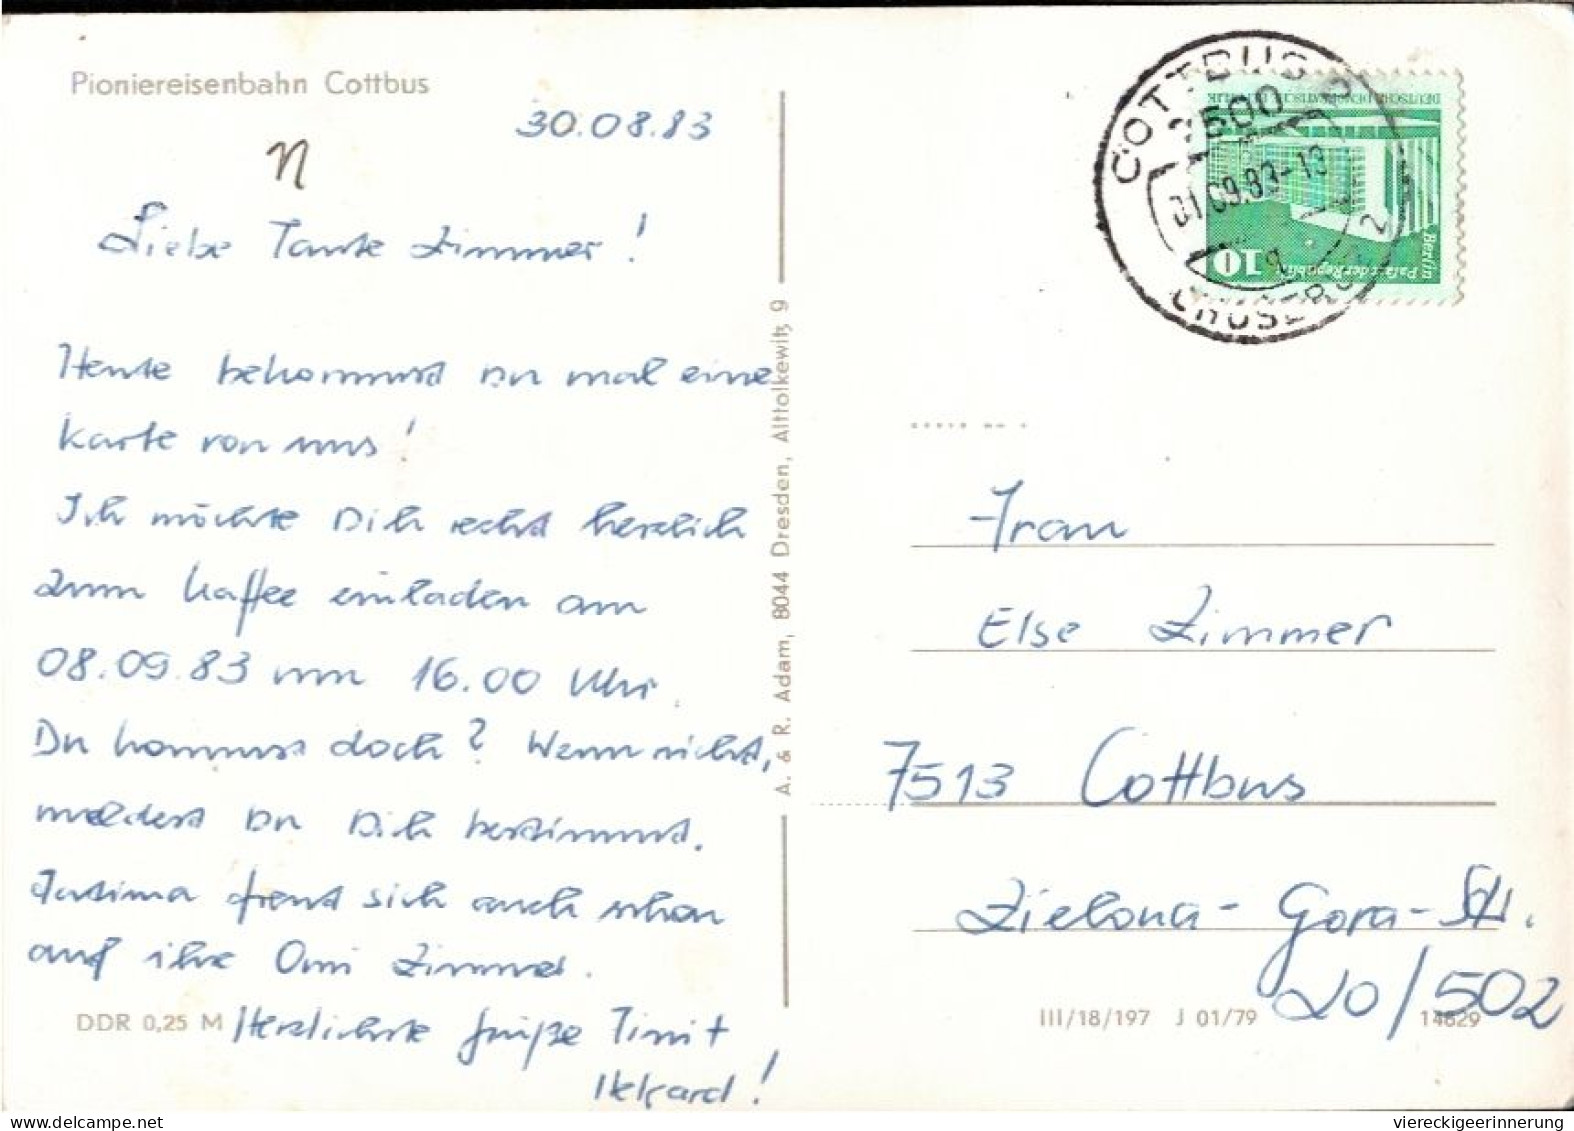 Pioniereisenbahn Cottbus
30.08.83
n
Liebe Tante Zimmer!
Heute bekommst Du mal eine
Karte von uns!
Ich möchte Dich recht herzlich
zum Kaffee einladen am
08.09.83 um 16.00 Uhr.
Du kommst doch? Wenn nicht,
meldest Du Dich bestimmt.
freut sich auch schon
auf ihre Omi Zimmer.
DDR 0,25 M
Herzlichste Grüße Timi +
!
A. & R. Adam, 8044 Dresden, Alttolkewitz 9
COTTBUS
7500
01.09.83-19
q
2
DEUTSCHE DEMOKRATISCHE REPUBLIK
Berlin Palast der Republik
10
Frau
Else Zimmer
7513 Cottbus
Zielona-Gora-Str.
20/502
III/18/197 J 01/79 14629
viereckigeerinnerung